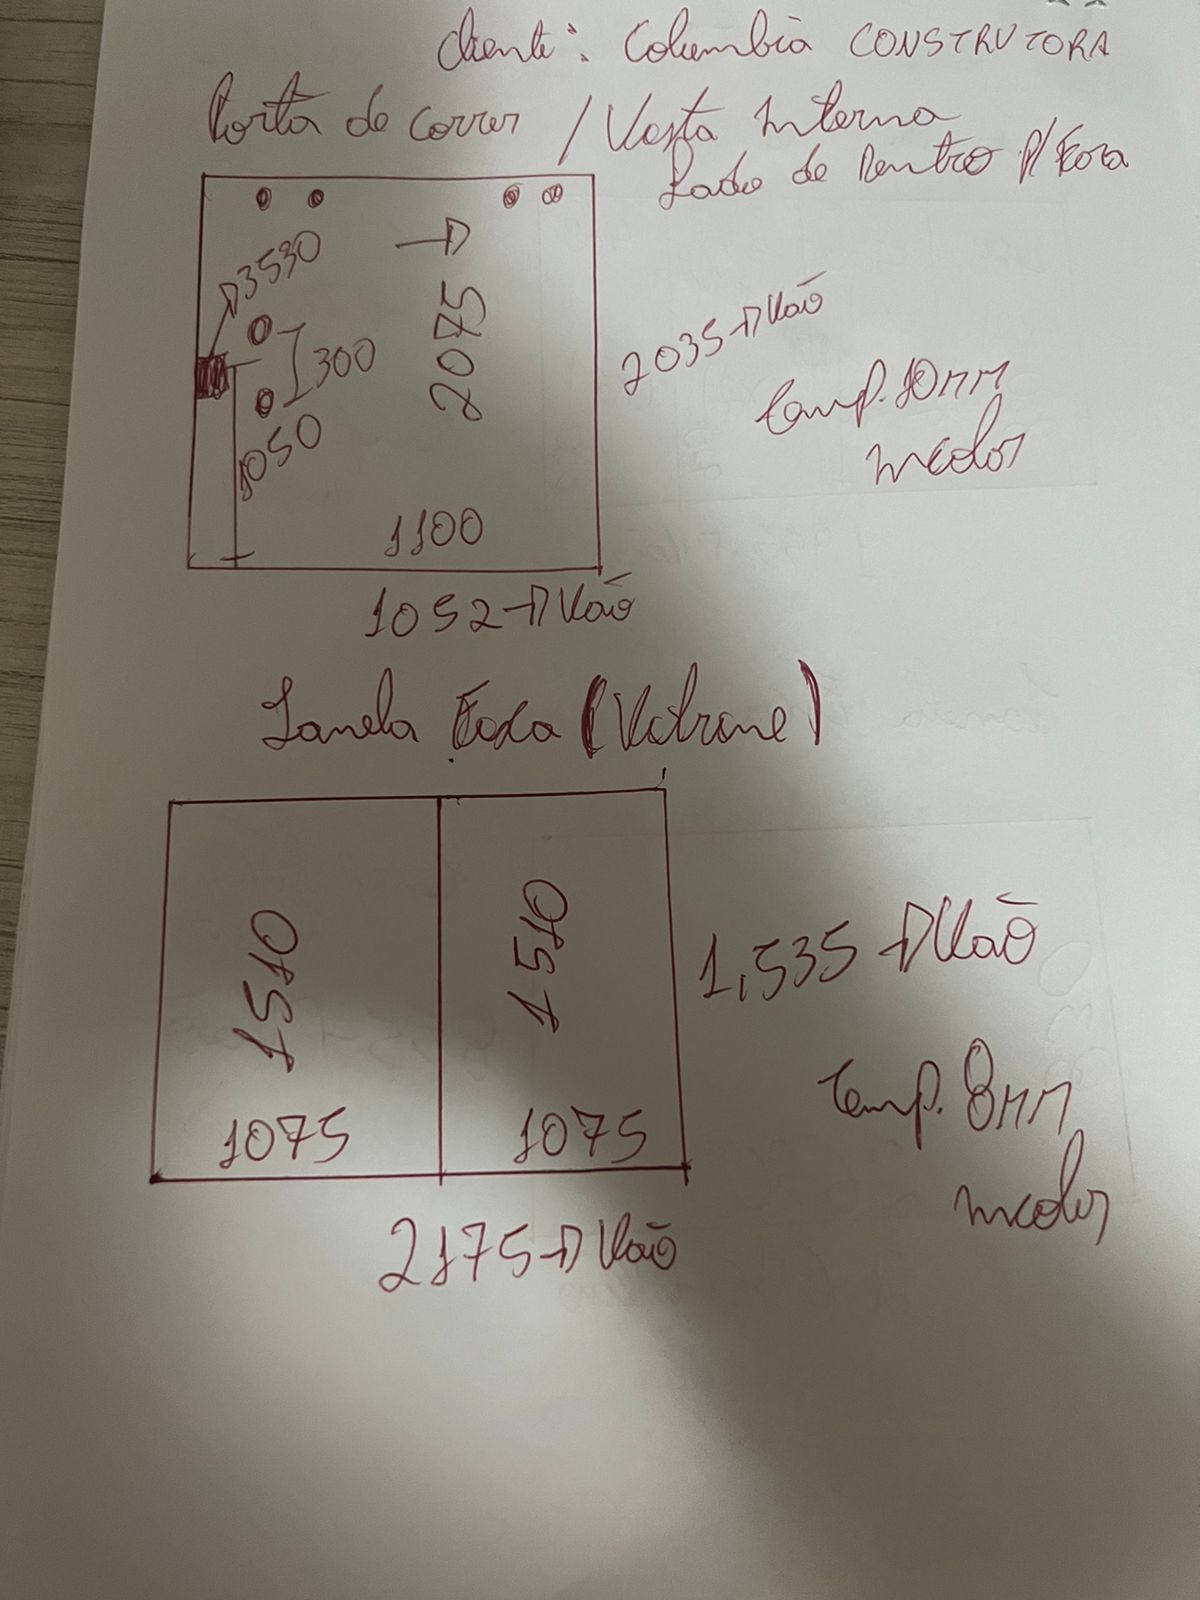 Cliente: Columbia CONSTRUTORA
Porta de Correr / Vista Interna
Lado de Dentro P/ Fora
3530
300
1050
2075
1100
2035 → Vão
Temp. 10MM
incolor
1052 → Vão
Janela Fixa (Vitrine)
1510
1510
1075
1075
1,535 → Vão
Temp. 8MM
incolor
2175 → Vão